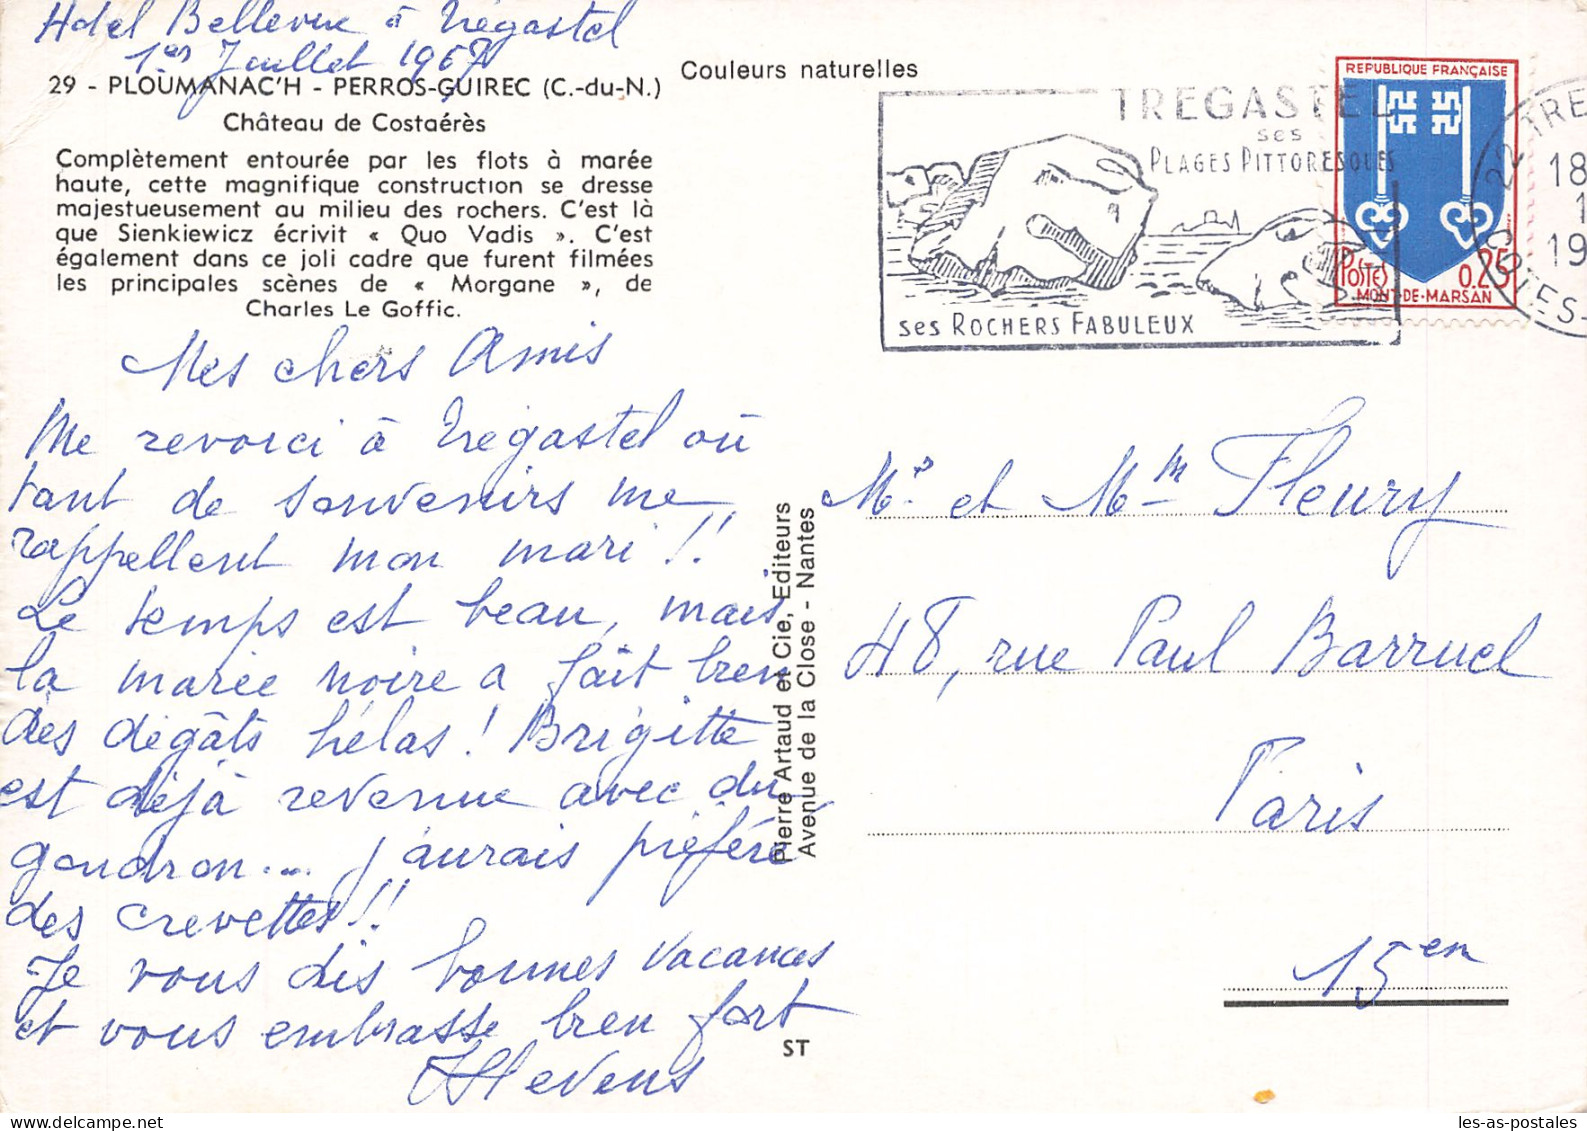 Hotel Bellevue à Trégastel
1er Juillet 1967
29 - PLOUMANAC'H - PERROS-GUIREC (C.-du-N.)
Château de Costaérès
Complètement entourée par les flots à marée
haute, cette magnifique construction se dresse
majestueusement au milieu des rochers. C'est là
que Sienkiewicz écrivit « Quo Vadis ». C'est
également dans ce joli cadre que furent filmées
les principales scènes de « Morgane », de
Charles Le Goffic.
Couleurs naturelles
TREGASTEL
ses
PLAGES PITTORESQUES
ses ROCHERS FABULEUX
REPUBLIQUE FRANÇAISE
POSTES
0.25
MONT-DE-MARSAN
22 TRE
18
1
19
COTES-
Mes chers Amis
Me revoici à Trégastel où
tant de souvenirs me
rappellent mon mari !!
Le temps est beau, mais
la marée noire a fait bien
des dégâts hélas ! Brigitte
est déjà revenue avec du
goudron... j'aurais préféré
des crevettes !!
Je vous dis bonnes vacances
et vous embrasse bien fort
Pierre Artaud et Cie, Editeurs
Avenue de la Close - Nantes
ST
Mr et Mme Fleury
48, rue Paul Barruel
Paris
15en
les-as-postales